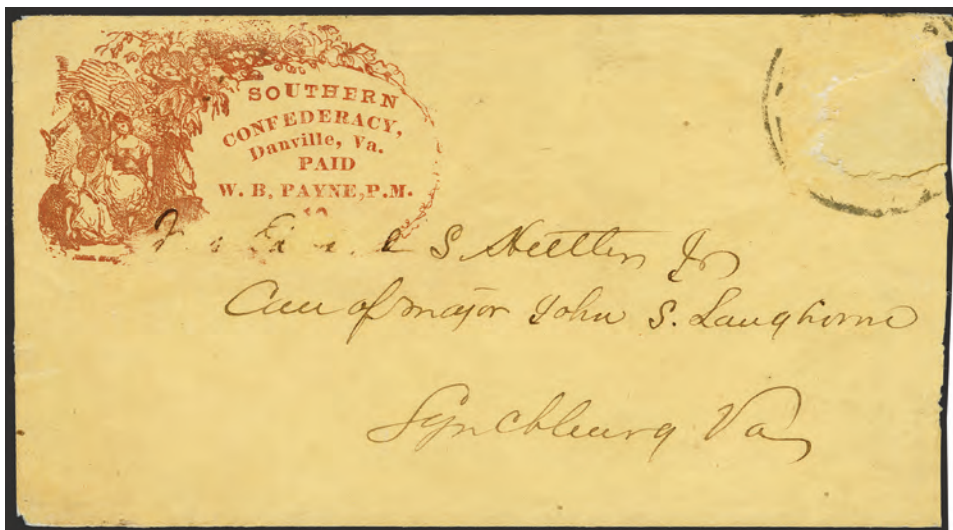 SOUTHERN
CONFEDERACY,
Danville, Va.
PAID
W. B. PAYNE, P.M.
S Jr
Care of major John S. Langhorne
Lynchburg Va